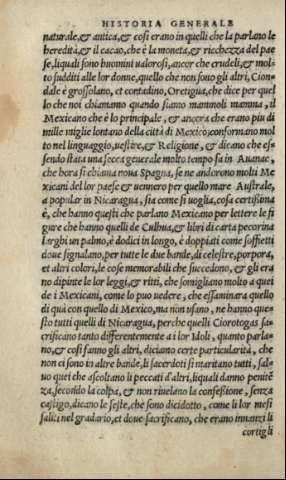 HISTORIA GENERALE
naturale,& antica,& cosi erano in quelli che la parlano le
heredità,& il cacao, che è la moneta,& ricchezza del pae
se,liquali sono huomini ualorosi,ancor che crudeli,& mol
to sudditi alle lor donne,quello che non sono gli altri, Cion
dale è grossolano, et contadino, Oretigua,che dice per quel
lo che noi chiamamo quando siamo mammoli mamma, il
Mexicano che è lo principale , & ancora che erano piu di
mille miglie lontano della città di Mexico,conformano mol
to nel linguaggio,uestire,& Religione , & dicano che es
sendo stata una secca generale molto tempo fa in Auanac,
che hora si chiama noua Spagna, se ne andorono molti Me
xicani del lor paese & uennero per quello mare Australe,
a popolar in Nicaragua , sia come si uoglia, cosa certissima
è, che hanno questi che parlano Mexicano per lettere le fi
gure che hanno quelli de Culhua,& libri di carta pecorina
larghi un palmo,è dodici in longo, è doppiati come soffietti
doue signalano,per tutte le due bande,di celestre,porpora,
et altri colori,le cose memorabili che succedono, & gli era
no dipinte le lor leggi,& ritti, che somigliano molto a quei
de i Mexicani, come lo puo uedere , che essaminara quello
di quà con quello di Mexico,ma non usano , ne hanno que-
sto tutti quelli di Nicaragua, perche quelli Ciorotogas sa-
crificano tanto differentemente a i lor Idoli , quanto parla-
no,& cosi fanno gli altri, diciamo certe particularità , che
non ci sono in altre bande,li sacerdoti si maritano tutti , sal-
uo quei che ascoltano li peccati d'altri,liquali danno peniten
za,secondo la colpa, & non riuelano la confessione , senza
castigo,dicano le feste,che sono dicidotto , come li lor mesi
saliti nel gradario,et doue sacrificano, che erano innanzi li
cortigli